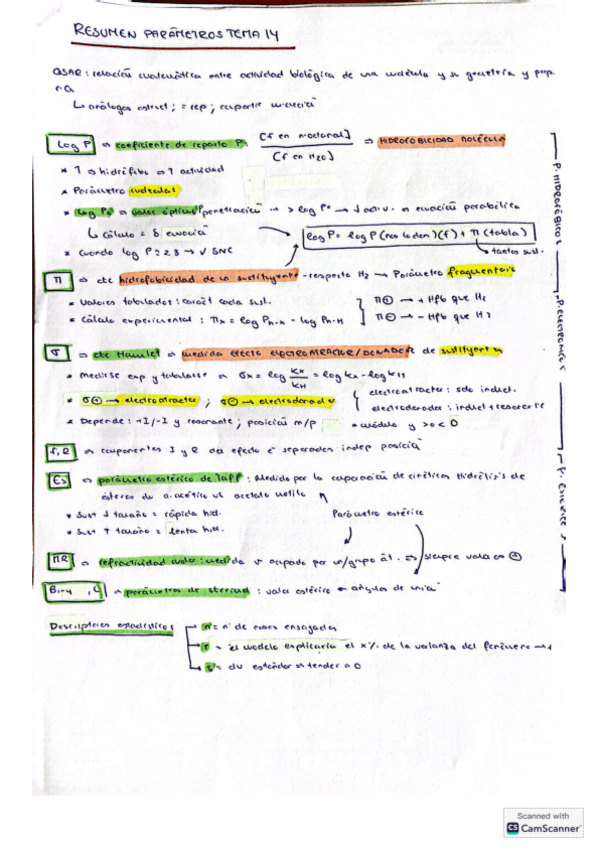 RESUMEN PARÁMETROS TEMA 14
QSAR: relación matemática entre actividad biológica de una molécula y su geometría y prop.
↳ análogos estruct; = rep; compartir
Log P ⇒ coeficiente de reparto P: [C f en n-octanol] / [C f en H2O] ⇒ HIDROFOBICIDAD MOLÉCULA
* ↑ ⇒ hidrófibo ⇒ ↑ actividad
* Parámetro molecular
* Log P0 ⇒ valor óptimo penetración → > log P0 → ↓ activ. ⇒ ecuación parabólica
↳ Cálculo = δ ecuación
log P = log P (nos lo dan) (f) + π (tabla)
↳ tantos sust.
* Cuando log P = 2,3 → √ SNC
π ⇒ cte hidrofobicidad de los sustituyente - respecto H2 → Parámetro fragmentario
* Valores tabulados: caract cada sust.
* Cálculo experimental: πx = log Pn-x - log Pn-H
π⊕ → + Hpb que H2
π⊖ → - Hpb que H2
σ ⇒ cte Hamlet ⇒ medida efecto ELECTROATRACTOR/DONADOR de sustituyentes
* Medirse exp y tabularse ⇒ σx = log Kx/KH = log Kx - log KH
* σ⊕ → electroatractor ; σ⊖ → electrodonador
electroatractor: solo induct.
electrodonador: induct + resonante
* Depende: +I/-I y resonante; posición m/p
* módulo y > o < 0
f, R ⇒ componentes I y R del efecto σ separados indep posición
Es ⇒ parámetro estérico de Taff: Medido por la comparación de cinéticas hidrólisis de
ésteres du a. acético vs acetato metilo
* Sust ↓ tamaño = rápida hid.
* Sust ↑ tamaño = lenta hid.
Parámetro estérico
MR ⇒ refractividad molar: medida v ocupado por un/grupo át. ⇒ siempre valor ⊕
, L ⇒ parámetros de sterimol: valor estérico ← ángulos de unión
Descriptores estadísticos
n = nº de casos ensayados
r = el modelo explicaría el x% de la varianza del fenómeno → 1
s = dv estándar → tender a 0
P. HIDROFÓBICOS
P. ELECTRÓNICOS
P. ESTÉRICOS
Scanned with
CS CamScanner